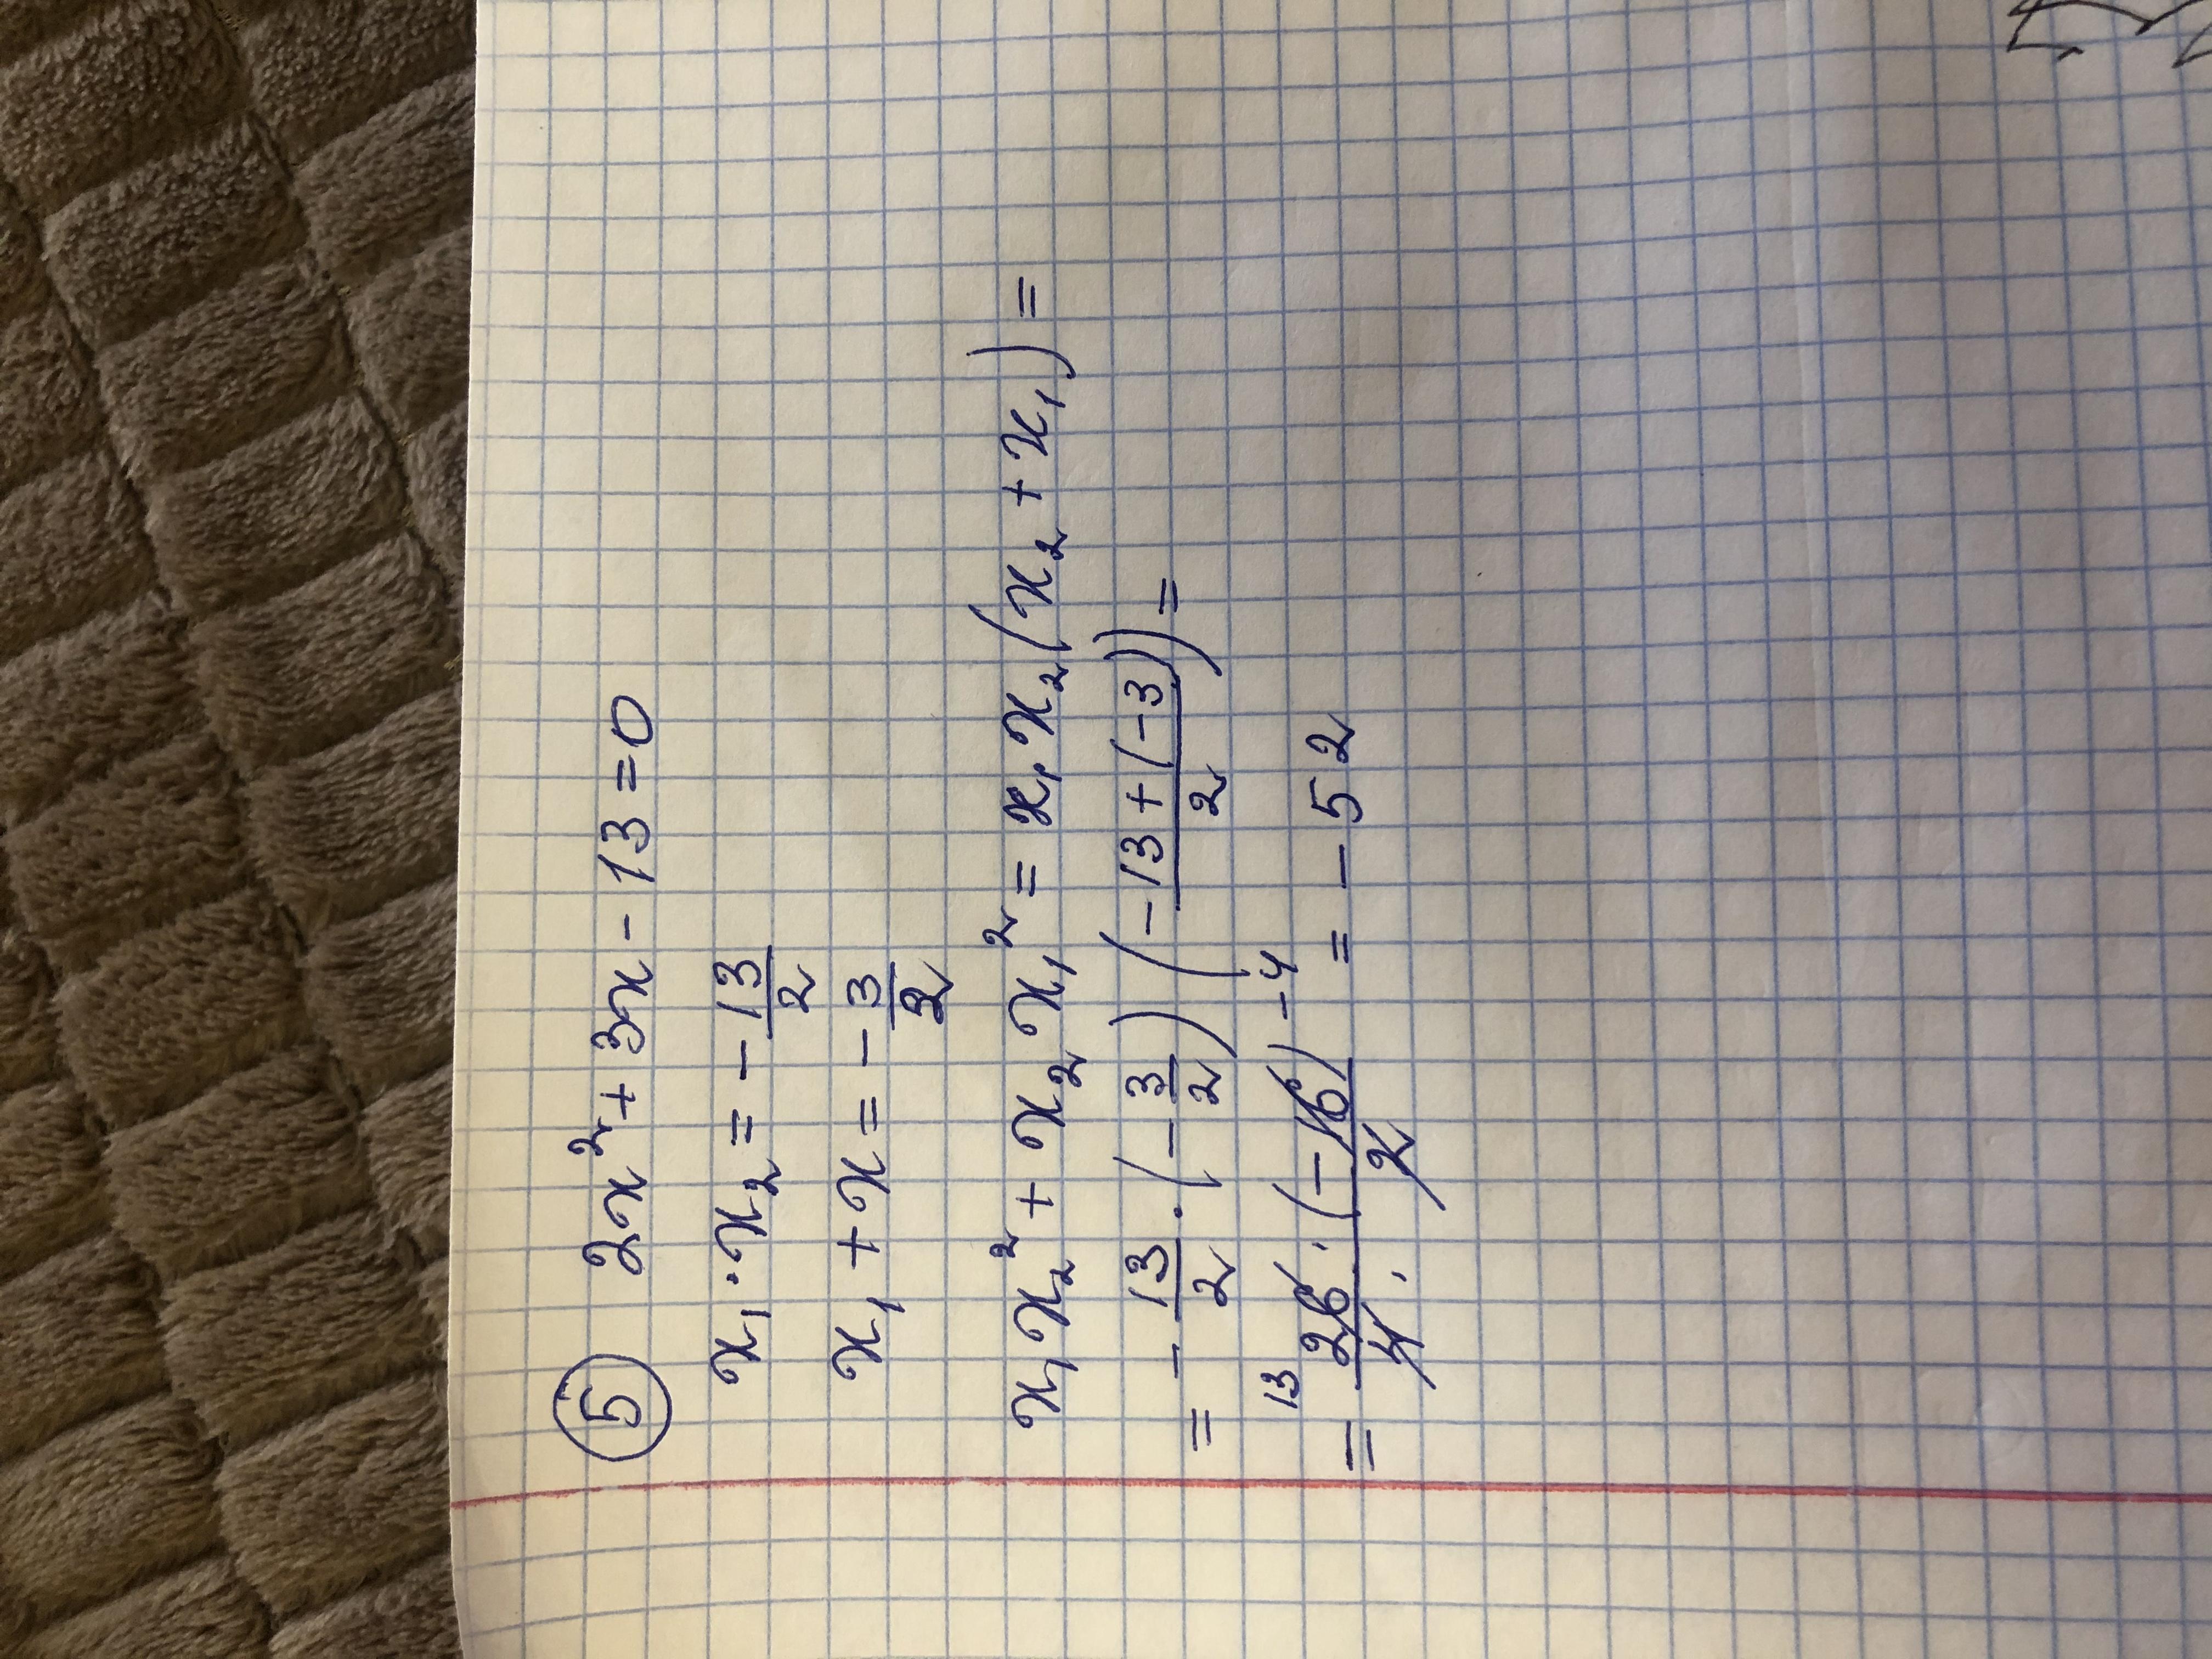 ⑤ 2x² + 3x - 13 = 0
x₁ · x₂ = - 13/2
x₁ + x = - 3/2
x₁x₂² + x₂x₁² = x₁x₂(x₂ + x₁) =
= - 13/2 · (- 3/2) (- 13 + (-3)/2) =
= 13 26 · (-16) -4 / 4 · 2 = - 52